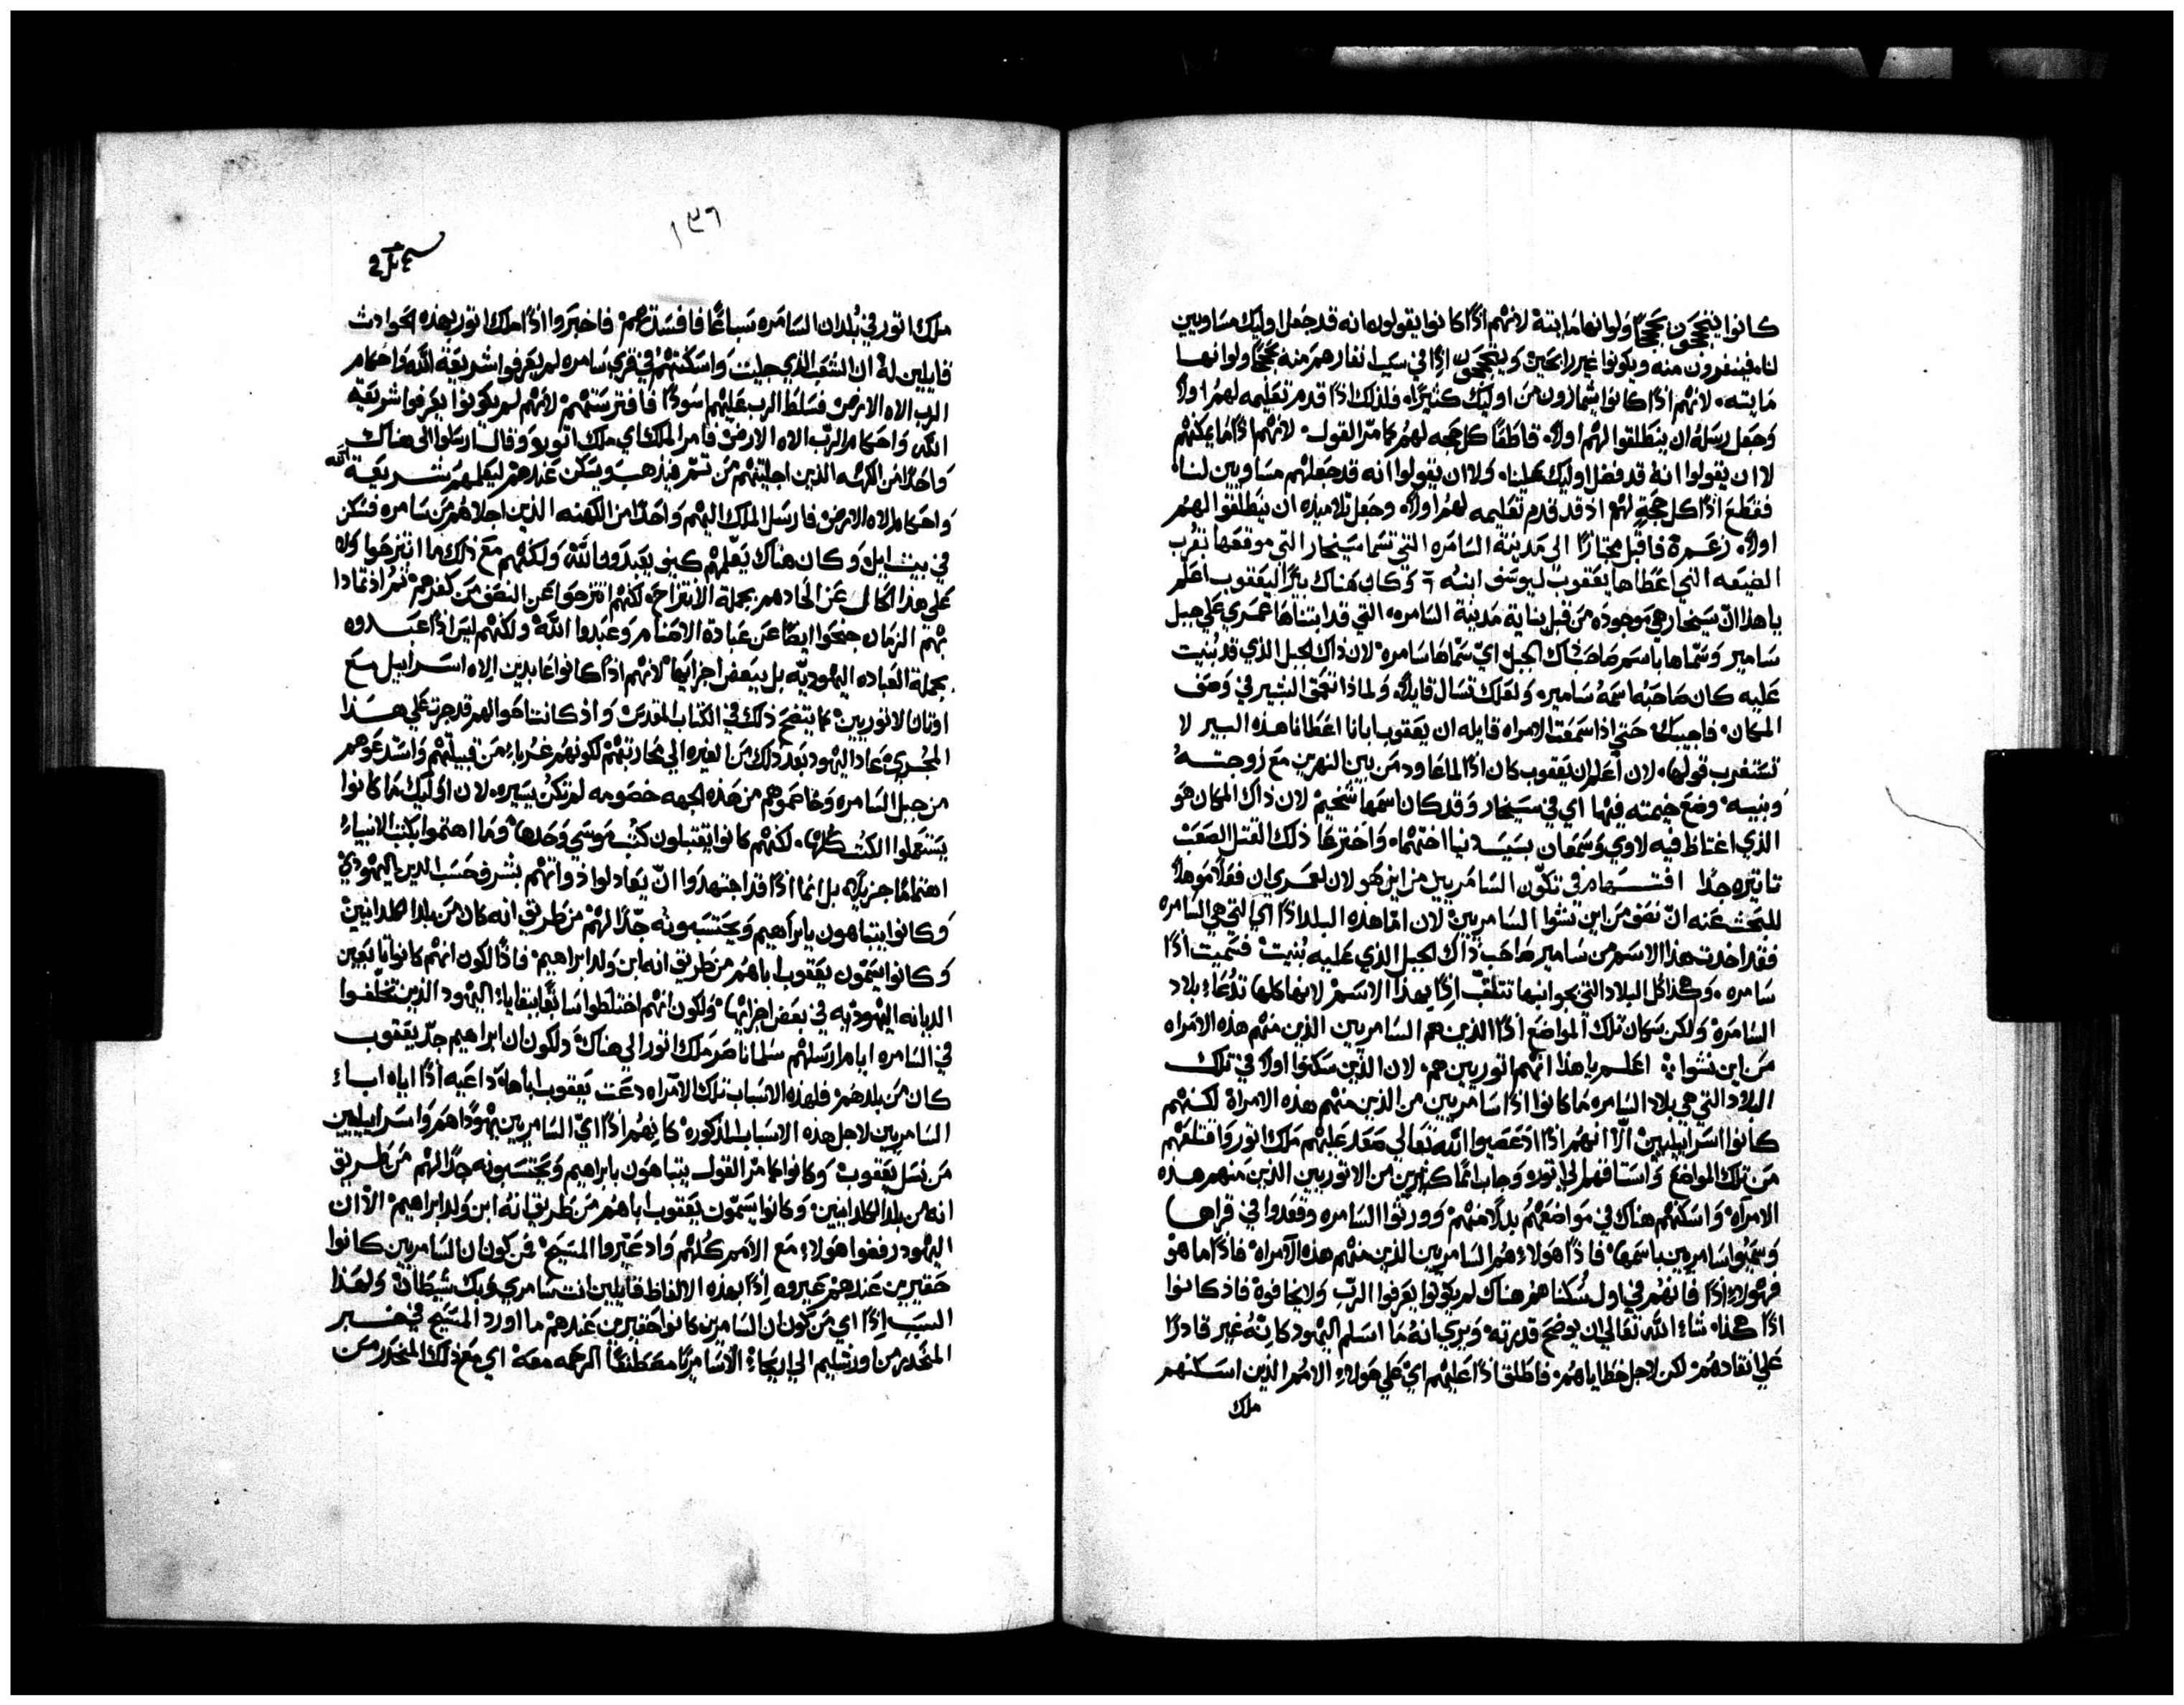 كانوا يتحججون حججًا ولو انها مايتة لانهم اذًا كانوا يقولون انه قد جعل اوليك مساويين
لنا، فينفرون منه ويكونوا غير رابحين ويتحججون اذًا في سبب انفارهم منه حججًا ولو انها
مايته. لانهم اذًا كانوا يشمازون من اوليك كثيرًا، فلذلك اذًا قدم تعليمه لهم اولًا
وجعل رسله ان ينطلقوا لهم اولًا، قاطعًا كل حجه لهم كما مر القول. لانهم اذًا ما يمكنهم
لا ان يقولوا انه قد فضل اوليك علينا، ولا ان يقولوا انه قد جعلهم مساويين لنا،
فقطع اذًا كل حجةٍ لهم اذ قد قدم تعليمه لهم اولًا، وجعل تلاميذه ان ينطلقوا لهم
اولًا، فاقبل مجتازًا الى مدينة السامره التي تسما سيخار التي موقعها بقرب
الضيعه التي اعطاها يعقوب ليوسف ابنه وكان هناك بيرًا ليعقوب اعلم
يا هذا ان سيخار هي موجوده من قبل بناية مدينة السامره، التي قد ابتناها عمري على جبل
سامير وسماها باسم صاحب ذاك الجبل اي سماها سامره لان ذاك الجبل الذي قد بُنيت
عليه كان صاحبه اسمه سامير، ولعلك تسال قايلًا، ولماذا تعمق البشير في وصف
المكان، فاجيبك حتي اذا سمعت الامراه قايله ان يعقوب ابانا اعطانا هذه البير لا
تستغرب قولها، لان اعلم ان يعقوب كان اذًا لما عاود من بين النهرين مع زوجته
وبنيه، وضع خيمته فيها اي في سيخار وقد كان اسمها شخيم لان ذاك المكان هو
الذي اغتاظ فيه لاوي وسمعان بسبب دنيا اختهما، واخترعا ذلك القتل الصعب
تاثيره جدًا افتهام في تكوّن السامريين من اين هو لان لعمري ان فعلًا موهلًا
للبحث عنه ان نصف من اين نشوا السامريين لان اما هذه البلد اذًا اي التي هي السامره
فقد اخذت هذا الاسم من سامير صاحب ذاك الجبل الذي عليه بُنيت، فسميت اذًا
سامره، وهكذا كل البلاد التي بجوانبها تتلقب اذًا بهذا الاسم لانها كلها تدعا بلاد
السامرة ولكن سكان تلك المواضع اذًا الذين هم السامريين الذين منهم هذه الامراه
من اين نشوا، اعلم يا هذا انهم اتوريين هم، لان الذين سكنوا اولًا في تلك
البلاد التي هي بلاد السامره ما كانوا اذًا سامريين من الذين منهم هذه الامراة لكنهم
كانوا اسراييليين، الّا انهم اذًا اذ عصيوا الله تعالي صعد عليهم ملك اتور واقتلعهم
من تلك المواضع واستاقهم الي اتور، وجاب اممًا كثيرين من الاتوريين الذين منهم هذه
الامراه، واسكنهم هناك في مواضعهم بدلًا منهم، وورثوا السامره وقعدوا في قراها
وسُميوا سامريين باسمها، فاذًا هولاء هم السامريين الذين منهم هذه الامراه، فاذًا ما هو
فهولاء اذًا فانهم في اول سُكناهم هناك لم يكونوا يعرفوا الرب ولا يخافوه، فاذ كانوا
اذًا هكذا، شاء الله تعالي ان يوضح قدرته، ويري انه ما اسلم اليهود كانه غير قادرًا
علي انقادهم لكن لاجل خطاياهم، فاطلق اذًا عليهم اي علي هولاء الامم الذين اسكنهم
ملك
١٣٦
ملك اتور في بُلدان السامره سباعًا فافسدتهم، فاخبروا اذًا ملك اتور بهذه الحوادث
قايلين له ان الشعب الذي جليت واسكنتهم في قري سامره لم يعرفوا شريعة الله واحكام
الرب الاه الارض، فسلط الرب عليهم اسودًا فافترستهم، لانهم لم يكونوا يعرفوا شريعة
الله واحكام الرب الاه الارض، فامر الملك اي ملك اتور وقال ارسلوا الى هناك
واحدًا من الكهنه الذين اجليتهم من تم، فيذهب ويسكن عندهم ليعلمهم شريعة الله
واحكام الاه الارض، فارسل الملك اليهم واحدًا من الكهنه الذين اجلاهم من سامره فسكن
في بيت ايل، وكان هناك يعلمهم كيف يعبدوا الله، ولكنهم مع ذلك ما انتزحوا ولا
على هذا الحال عن الحادهم بجملة الانتزاح، لكنهم انتزحوا عن النصف من كفرهم، ثم اذ تمادا
بهم الزمان جنحوا ايضًا عن عبادة الاصنام وعبدوا الله، ولكنهم ليس اذًا عبدوه
بجملة العباده اليهوديّه بل ببعض اجزايها، لانهم اذًا كانوا عابدين الاه اسراييل مع
اوثان الاتوريين، كما يتضح ذلك في الكتاب المقدس، واذ كانت احوالهم قد جرت علي هذا
المجري، عاد اليهود بعد ذلك من الغيره الي محاربتهم لكونهم غرباء من قبيلتهم، واستدعوهم
من جبل السامره وخاصموهم من هذه الجهه خصومه لم تكن يسيره، لان اوليك ما كانوا
يستعملوا الكتب كلها، لكنهم كانوا يقتبلون كتب موسي وحدها، وما اهتموا بكتب الانبياء
اهتمامًا جزيلًا، بل انما اذًا قد اجتهدوا ان يعادلوا ذواتهم بشرف حسب الدين اليهودي
وكانوا يتباهون بابراهيم ويحتسبونه جدًا لهم من طريق انه كان من بلد الكلدانيين
وكانوا يسمّون يعقوب اباهم من طريق انه ابن ولد ابراهيم، فاذًا لكون انهم كانوا تابعين
الديانه اليهوديه في بعض اجزايها، ولكون انهم اختلطوا سابقًا ببقايا اليهود الذين تخلفوا
في السامره ايام ارسلهم سلماناصر ملك اتور الي هناك، ولكون ان ابراهيم جدّ يعقوب
كان من بلدهم، فلهذه الاسباب تلك الامراه دعت يعقوب اباها، داعيه اذًا اياه اباء
السامريين لاجل هذه الاسباب المذكوره، كانهم اذًا اي السامريين يهودًا هم واسراييليين
من نسل يعقوب، وكانوا كما مر القول يتباهون بابراهيم ويحتسبونه جدًا لهم من طريق
انه من بلد الكلدانيين، وكانوا يسمّون يعقوب اباهم من طريق انه ابن ولد ابراهيم، الّا ان
اليهود رفضوا هولاء مع الامم كلهم، واذ عيّروا المسيح، فمن كون ان السامريين كانوا
حقيرين عندهم عيروه اذًا بهذه الالفاظ قايلين انت سامري وبك شيطان، ولهذا
السبب اذًا اي من كون ان السامريين كانوا حقيرين عندهم ما اورد المسيح في خبر
المنحدر من اورشليم الي اريحاء، الّا سامريًا مصطنعًا الرحمه معه، اي مع ذلك المنحدر من